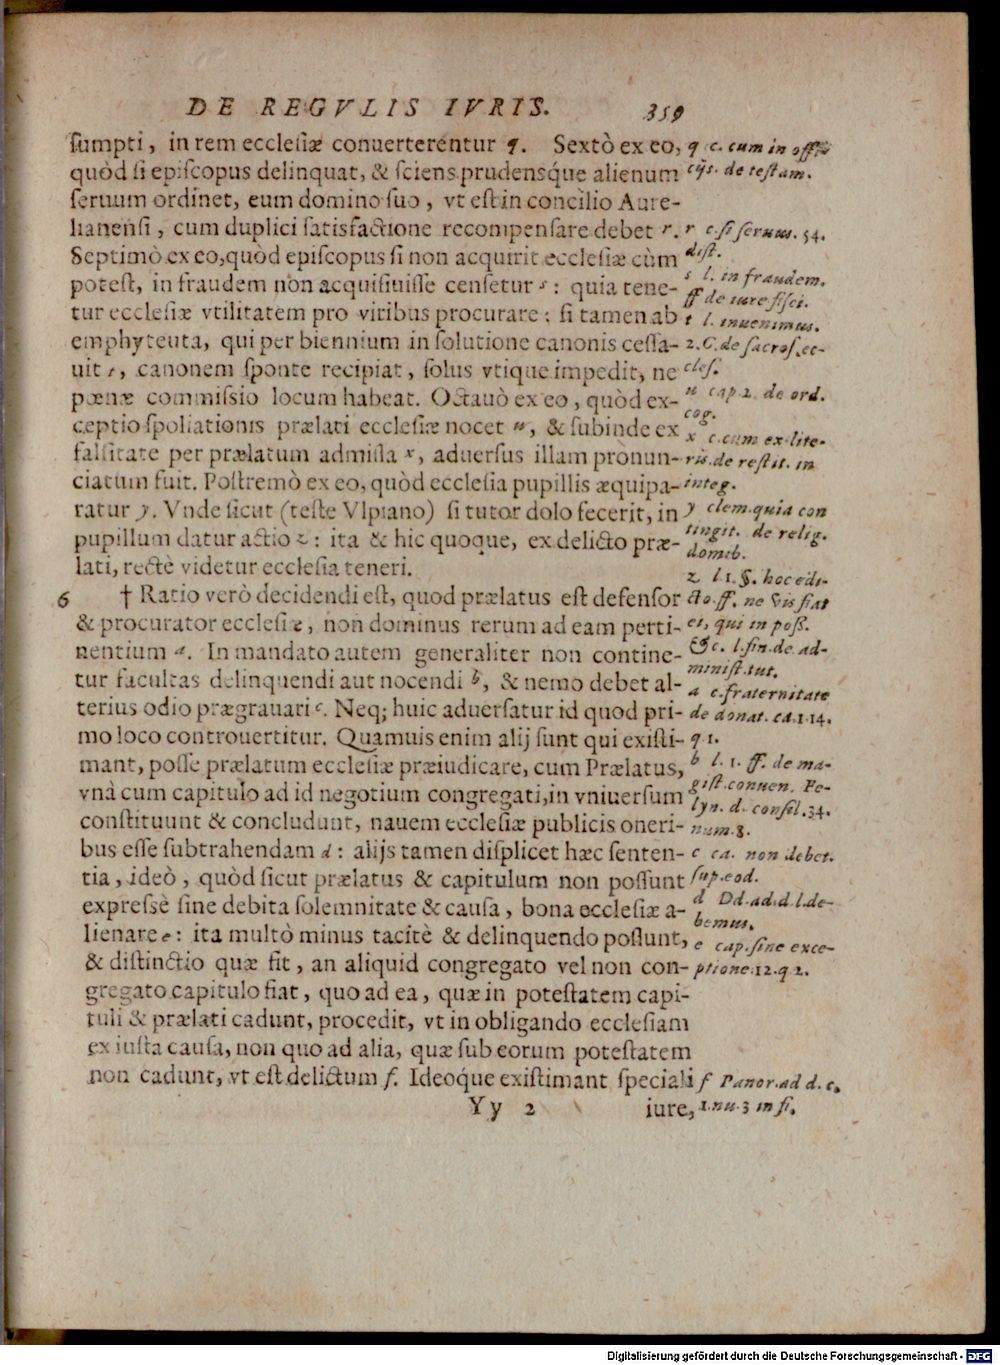 DE REGVLIS IVRIS. 359
ſumpti, in rem eccleſiæ conuerterentur q. Sextò ex eo,
quòd ſi epiſcopus delinquat, & ſciens prudensq́ue alienum
ſeruum ordinet, eum domino ſuo, vt eſt in concilio Aure-
lianenſi, cum duplici ſatisfactione recompenſare debet r.
Septimò ex eo, quòd epiſcopus ſi non acquirit eccleſiæ cùm
poteſt, in fraudem non acquiſiuiſſe cenſetur s: quia tene-
tur eccleſiæ vtilitatem pro viribus procurare: ſi tamen ab
emphyteuta, qui per biennium in ſolutione canonis ceſſa-
uit t, canonem ſponte recipiat, ſolus vtique impedit, ne
pœnæ commiſsio locum habeat. Octauò ex eo, quòd ex-
ceptio ſpoliationis prælati eccleſiæ nocet u, & ſubinde ex
falſitate per prælatum admiſſa x, aduerſus illam pronun-
ciatum fuit. Poſtremò ex eo, quòd eccleſia pupillis æquipa-
ratur y. Vnde ſicut (teſte Vlpiano) ſi tutor dolo fecerit, in
pupillum datur actio z: ita & hic quoque, ex delicto præ-
lati, rectè videtur eccleſia teneri.
6 † Ratio verò decidendi eſt, quod prælatus eſt defenſor
& procurator eccleſiæ, non dominus rerum ad eam perti-
nentium a. In mandato autem generaliter non contine-
tur facultas delinquendi aut nocendi b, & nemo debet al-
terius odio prægrauari c. Neq; huic aduerſatur id quod pri-
mo loco controuertitur. Quamuis enim alij ſunt qui exiſti-
mant, poſſe prælatum eccleſiæ præiudicare, cum Prælatus,
vnà cum capitulo ad id negotium congregati, in vniuerſum
conſtituunt & concludunt, nauem eccleſiæ publicis oneri-
bus eſſe ſubtrahendam d: alijs tamen diſplicet hæc ſenten-
tia, ideò, quòd ſicut prælatus & capitulum non poſſunt
expreſsè ſine debita ſolemnitate & cauſa, bona eccleſiæ a-
lienare e: ita multò minus tacitè & delinquendo poſſunt,
& diſtinctio quæ fit, an aliquid congregato vel non con-
gregato capitulo fiat, quo ad ea, quæ in poteſtatem capi-
tuli & prælati cadunt, procedit, vt in obligando eccleſiam
ex iuſta cauſa, non quo ad alia, quæ ſub eorum poteſtatem
non cadunt, vt eſt delictum f. Ideoq́ue exiſtimant ſpeciali
Yy 2 iure,
q c. cum in offi-
cijs. de teſtam.
r c. ſi ſeruus. 54.
diſt.
s l. in fraudem.
ff de iure fiſci.
t l. inuenimus.
2. C. de ſacroſ. ec-
cleſ.
u cap. 2. de ord.
cog.
x c. cum ex lite-
ris. de reſtit. in
integ.
y clem. quia con
tingit. de relig.
domib.
z l 1. §. hoc edi-
cto. ff. ne vis fiat
ei, qui in poſſ.
&c. l. fin. de ad-
miniſt. tut.
a c. fraternitate
de donat. ca. 1. 14.
q. 1.
b l. 1. ff. de ma-
giſt. conuen. Fe-
lyn. d. conſil. 34.
num. 8.
c ca. non debet.
ſup. eod.
d Dd. ad. d. l. de-
bemus.
e cap. ſine exce-
ptione. 12. q 2.
f Panor. ad d. c.
1. nu. 3 in fi.
Digitalisierung gefördert durch die Deutsche Forschungsgemeinschaft - DFG